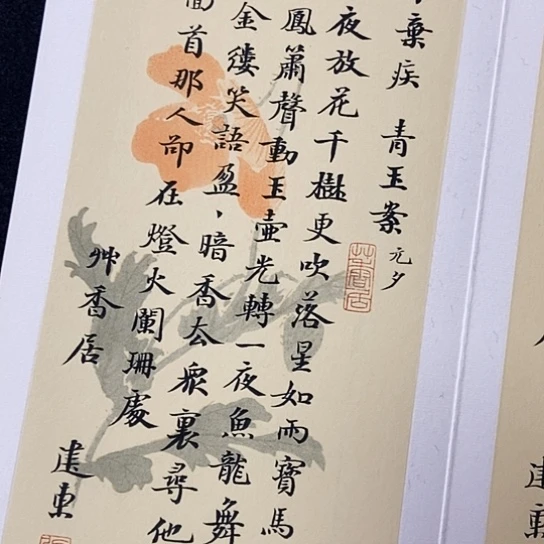 棄疾 青玉案 元夕
夜放花千樹更吹落星如雨寶馬
鳳簫聲動玉壺光轉一夜魚龍舞
金縷笑語盈〻暗香去衆裏尋他
首那人卻在燈火闌珊處
艸香居
建東